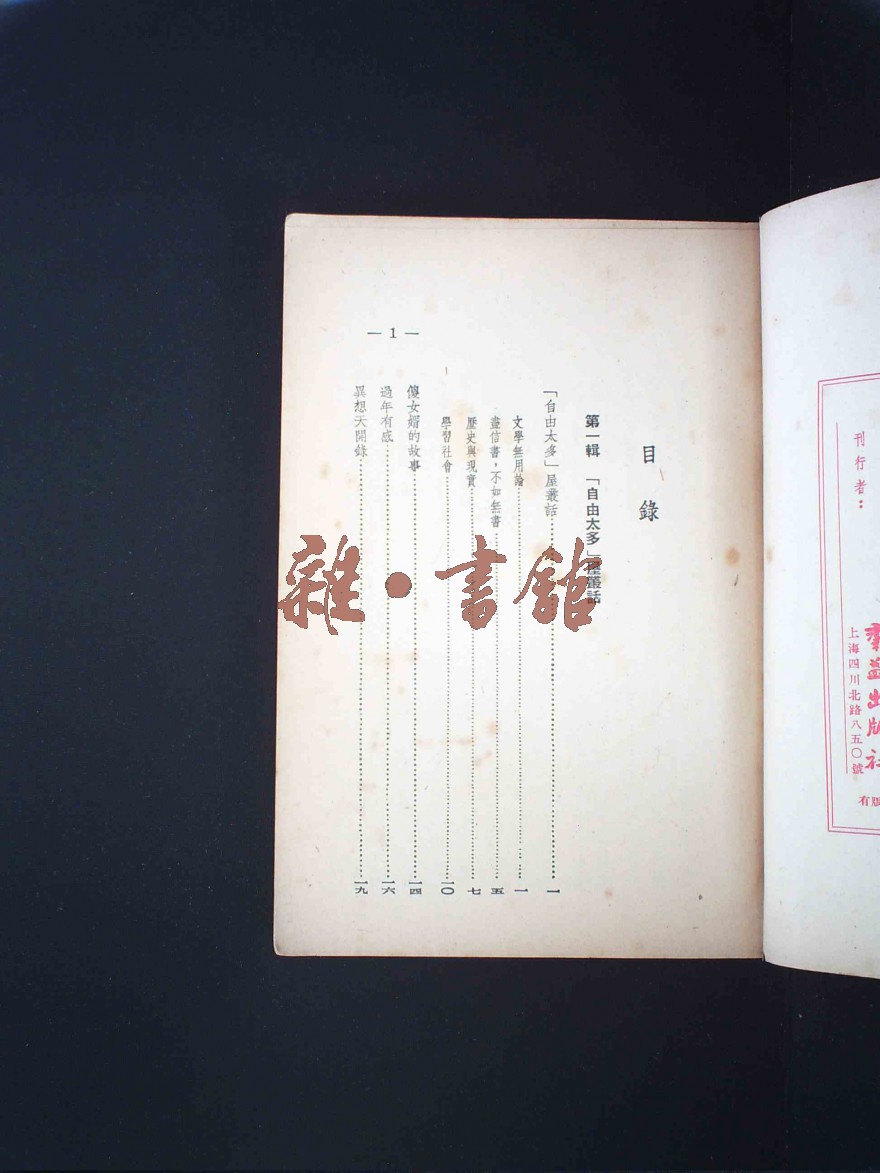 刊行者：
羣益出版社
上海四川北路八五〇號
有版
目錄
第一輯 「自由太多」屋叢話
「自由太多」屋叢話……一
文學無用論……一
盡信書，不如無書……五
歷史與現實……七
學習社會……一〇
傻女婿的故事……一四
過年有感……一六
異想天開錄……一九
— 1 —
雜·書館